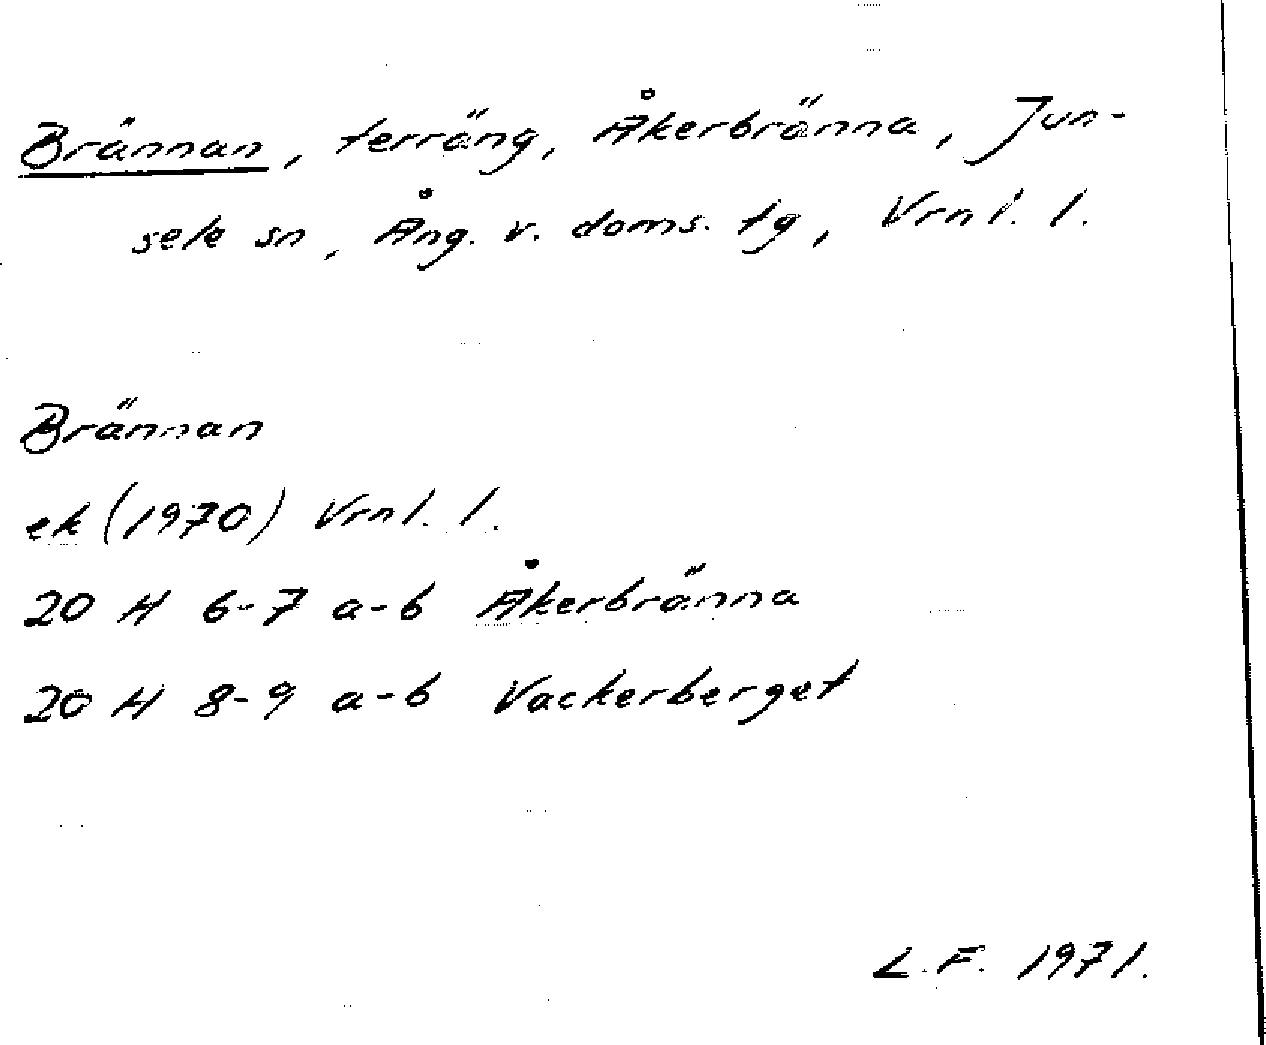 Brännan, terräng, Åkerbränna, Jun-
sele sn, Ång. v. doms. tg, Vrnl. l.
Brännan
ek (1970) Vrnl. l.
20 H 6-7 a-b Åkerbränna
20 H 8-9 a-b Vackerberget
L.F. 1971.